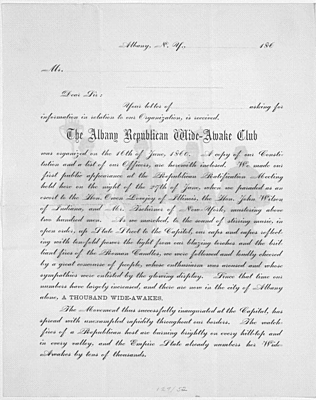 Albany, N. Y., 186
Mr.
Dear Sir:
Your letter of asking for
information in relation to our Organization, is received.
The Albany Republican Wide-Awake Club
was organized on the 16th of June, 1860. A copy of our Consti-
tution and a list of our Officers, are herewith inclosed. We made our
first public appearance at the Republican Ratification Meeting
held here on the night of the 27th of June, when we paraded as an
escort to the Hon. Owen Lovejoy of Illinois, the Hon. John Wilson
of Indiana, and Mr. of New-York, mustering above
two hundred men. As we marched, to the sound of stirring music, in
open order, up State Street to the Capitol, our caps and capes reflect-
ing with tenfold power the light from our blazing torches and the bril-
liant fires of the Roman Candles, we were followed and loudly cheered
by a great concourse of people, whose enthusiasm was roused and whose
sympathies were enlisted by the glowing display. Since that time our
numbers have largely increased, and there are now in the city of Albany
alone, A THOUSAND WIDE-AWAKES.
The Movement thus successfully inaugurated at the Capitol, has
spread with unexampled rapidity throughout our borders. The watch-
fires of a Republican host are burning brightly on every hill-top and
in every valley, and the Empire State already numbers her Wide-
Awakes by tens of thousands.